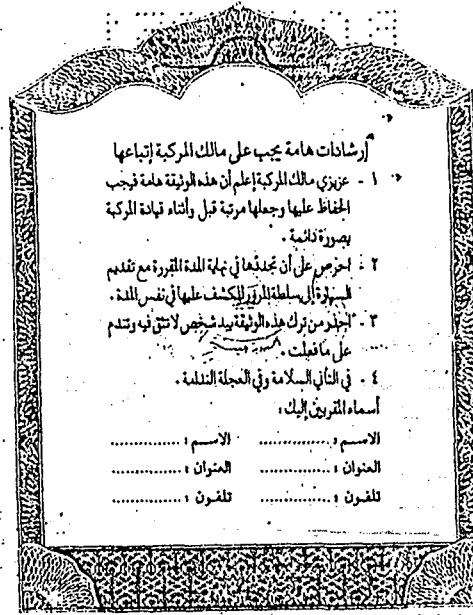 إرشادات هامة يجب على مالك المركبة إتباعها
١ - عزيزي مالك المركبة إعلم أن هذه الوثيقة هامة فيجب
الحفاظ عليها وجعلها مرتبة قبل وأثناء قيادة المركبة
بصورة دائمة .
٢ - احرص على أن تجددها في نهاية المدة المقررة مع تقديم
السيارة إلى سلطة المرور للكشف عليها في نفس المدة .
٣ - احذر من ترك هذه الوثيقة بيد شخص لا تثق فيه وتندم
على ما فعلت .
٤ - في التأني السلامة وفي العجلة الندامة .
أسماء المقربين إليك :
الاسم : .............. الاسم : ..............
العنوان : .............. العنوان : ..............
تلفون : .............. تلفون : ..............